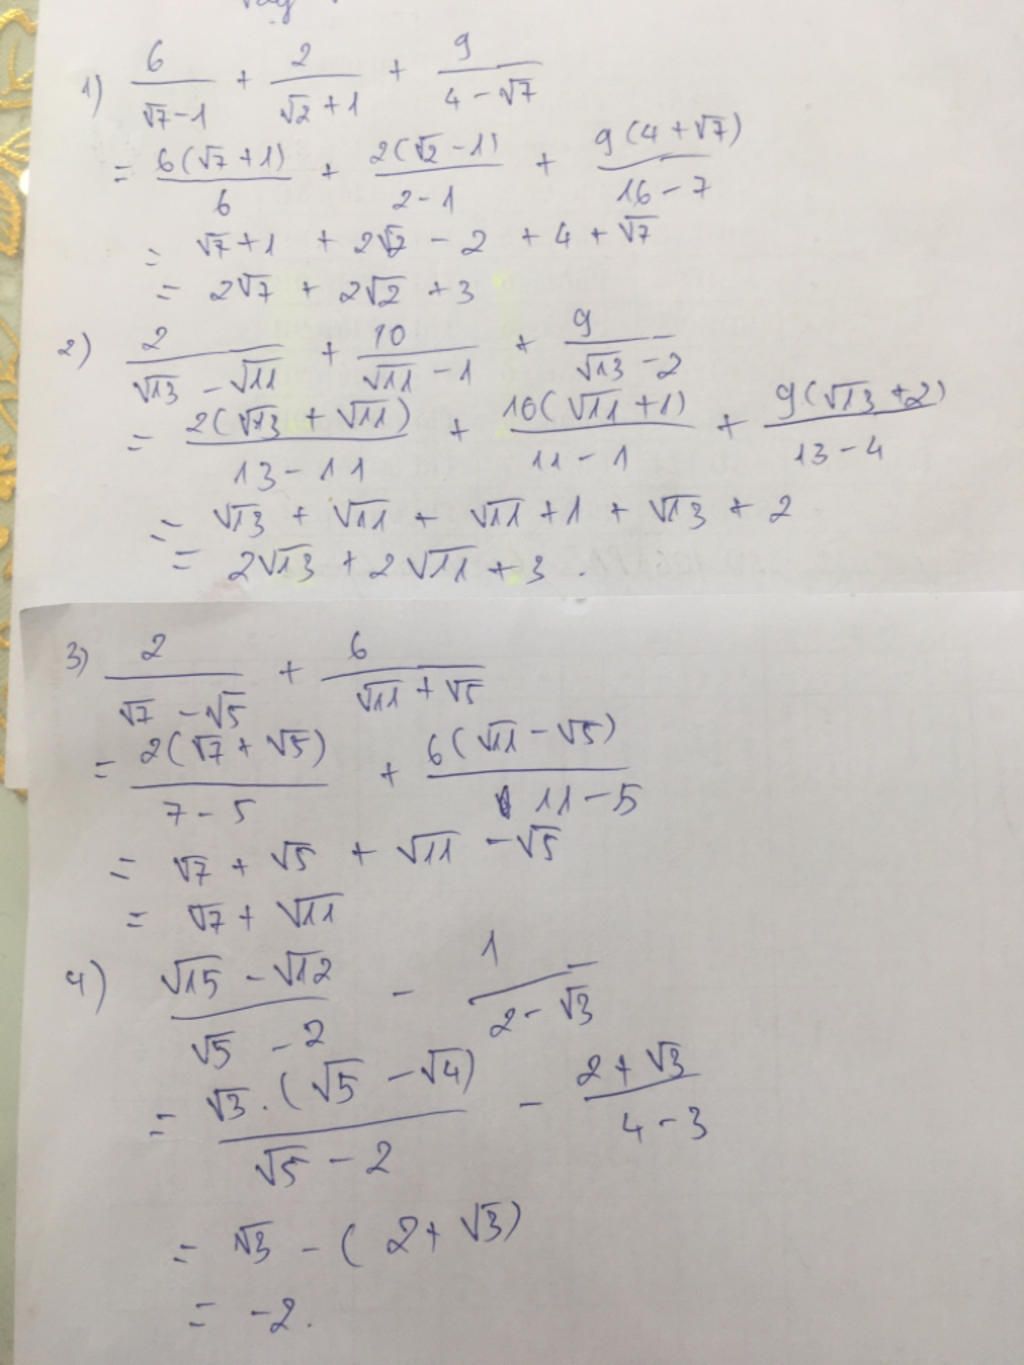 1) 6/(√7-1) + 2/(√2+1) + 9/(4-√7)
= 6(√7+1)/6 + 2(√2-1)/(2-1) + 9(4+√7)/(16-7)
= √7+1 + 2√2 - 2 + 4 + √7
= 2√7 + 2√2 + 3
2) 2/(√13-√11) + 10/(√11-1) + 9/(√13-2)
= 2(√13+√11)/(13-11) + 10(√11+1)/(11-1) + 9(√13+2)/(13-4)
= √13 + √11 + √11+1 + √13 + 2
= 2√13 + 2√11 + 3.
3) 2/(√7-√5) + 6/(√11+√5)
= 2(√7+√5)/(7-5) + 6(√11-√5)/(11-5)
= √7 + √5 + √11 - √5
= √7 + √11
4) (√15-√12)/(√5-2) - 1/(2-√3)
= √3.(√5-√4)/(√5-2) - (2+√3)/(4-3)
= √3 - (2+√3)
= -2.